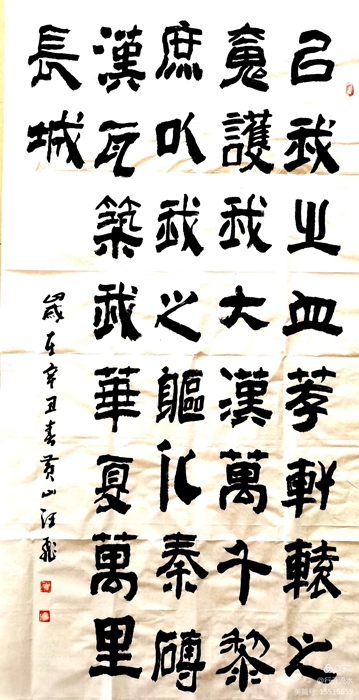 以我之血荐軒轅之
魂護我大漢萬千黎
庶以我之軀化秦磚
漢瓦築我華夏萬里
長城
歲在辛丑春黃山汪飛
美篇号